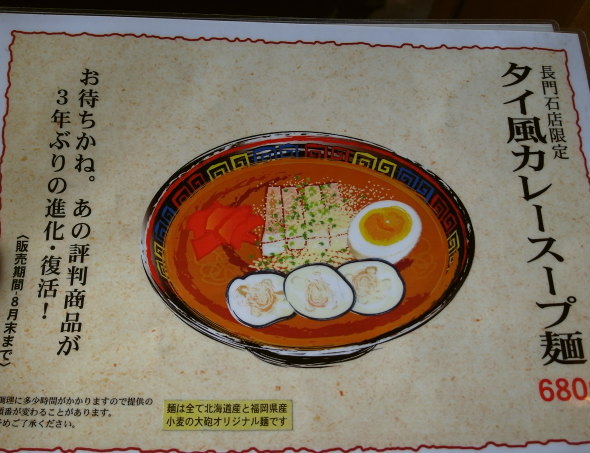 長門石店限定
タイ風カレースープ麺
680
お待ちかね。あの評判商品が
3年ぶりの進化・復活!
〈販売期間-8月末まで〉
調理に多少時間がかかりますので提供の
順番が変わることがあります。
予めご了承ください。
麺は全て北海道産と福岡県産
小麦の大砲オリジナル麺です